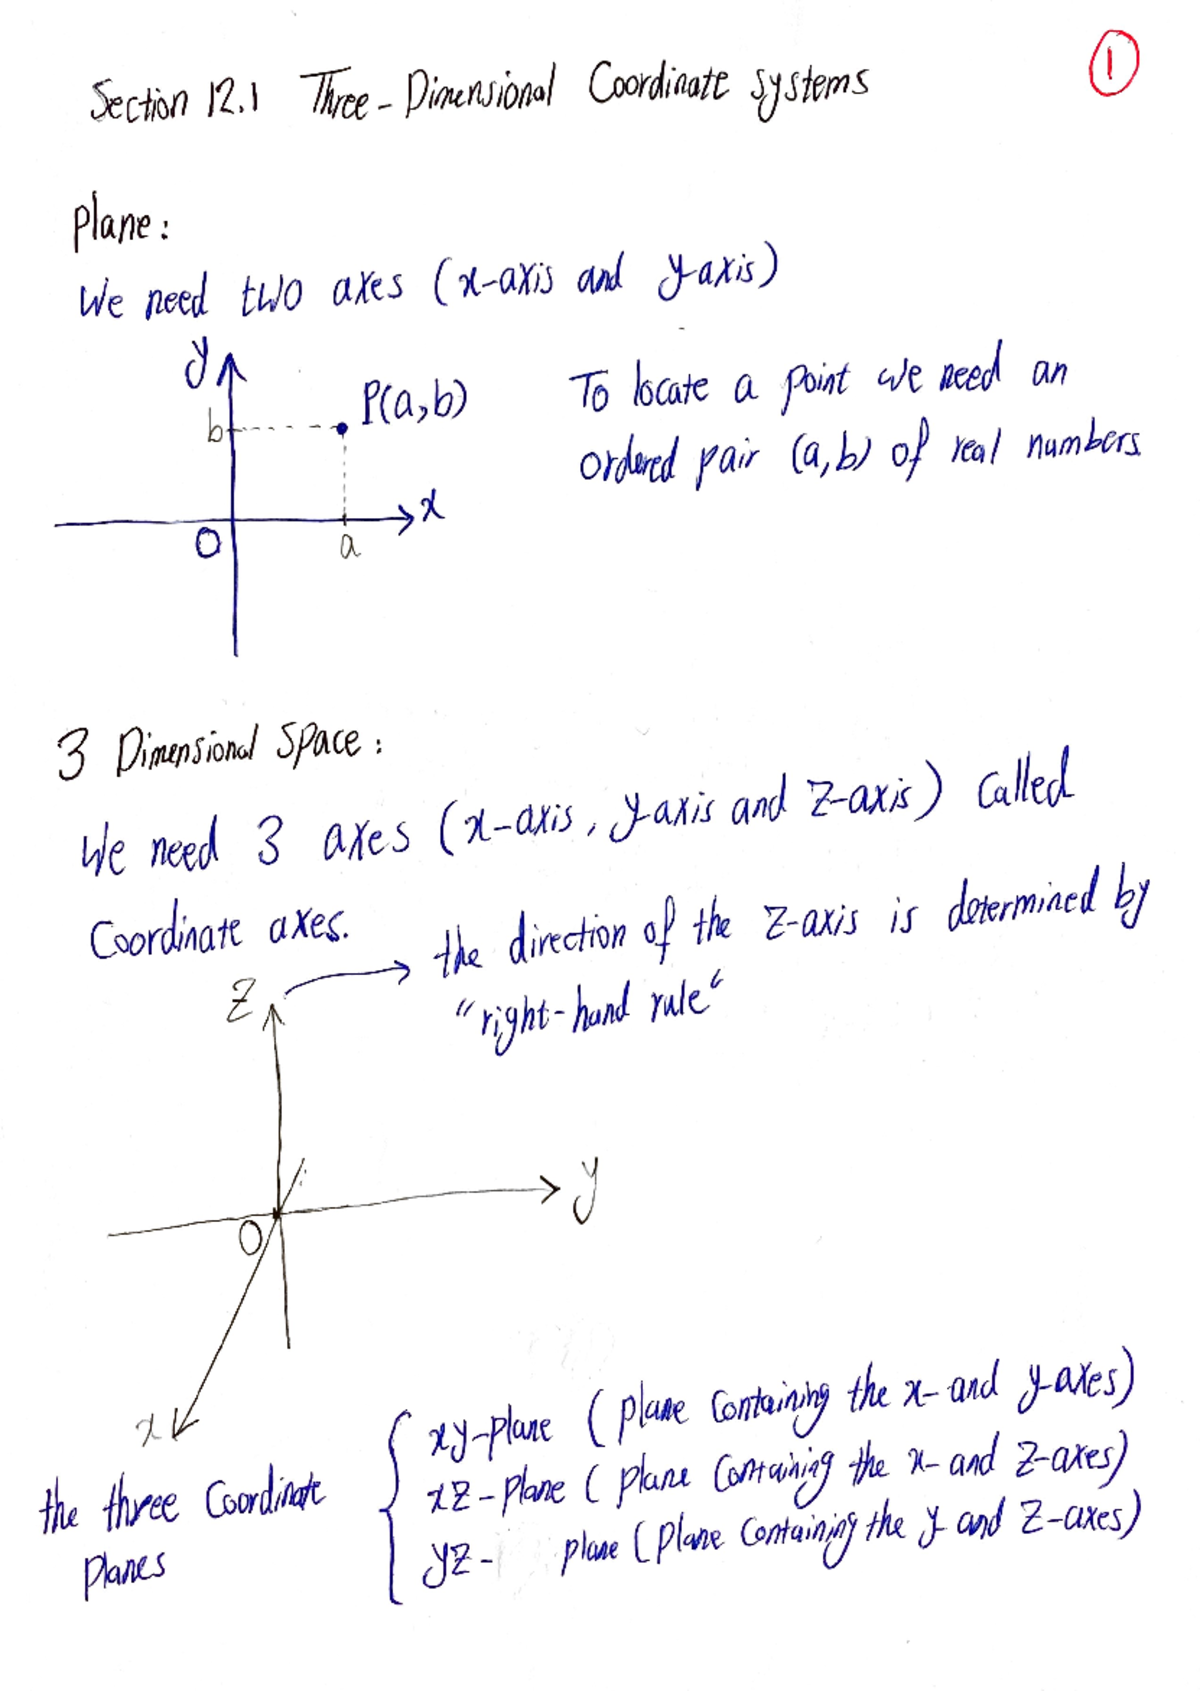 1
Section 12.1 Three-Dimensional Coordinate systems
Plane:
We need two axes (x-axis and y-axis)
y
P(a,b)
b
x
O
a
To locate a point we need an
ordered pair (a,b) of real numbers.
3 Dimensional Space:
We need 3 axes (x-axis, y-axis and z-axis) called
Coordinate axes.
the direction of the z-axis is determined by
"right-hand rule"
z
y
O
x
the three Coordinate
Planes
xy-plane (plane containing the x- and y-axes)
xz-plane (plane containing the x- and z-axes)
yz- plane (plane containing the y and z-axes)